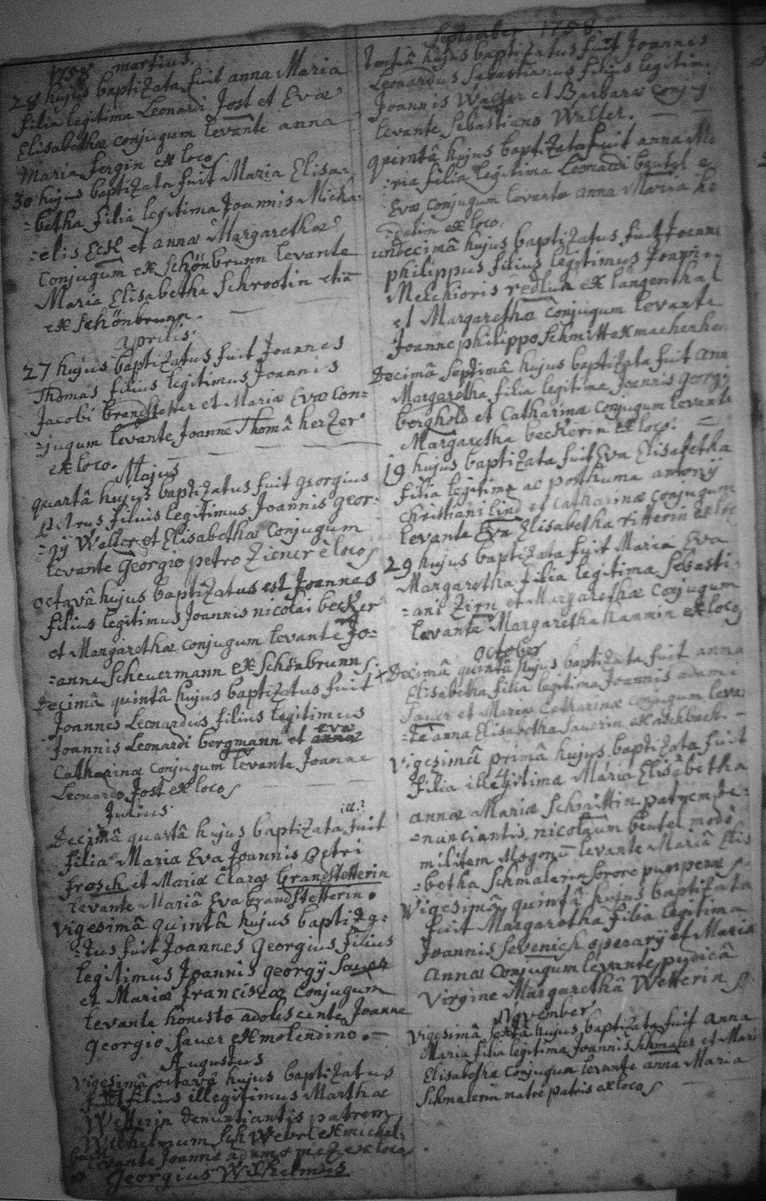 1758 martius.
28 hujus baptizata fuit anna Maria
filia legitima Leonardi Jost et Evæ
Elisabethæ conjugum levante anna
Maria fergin ex loco
30 hujus baptizata fuit Maria Elisa-
-betha filia legitima Joannis Micha-
-elis et annæ Margarethæ
Conjugum ex Schönbrunn levante
Maria Elisabetha Schrootin etiā
ex Schönbrunn.
Aprilis
27 hujus baptizatus fuit Joannes
Thomas filius legitimus Joannis
Jacobi brandstetter et Mariæ Evæ con-
-jugum levante Joanne Thomâ herzer
ex loco.
Majus
quartâ hujus baptizatus fuit georgius
petrus filius legitimus Joannis geor-
-gÿ Welter et Elisabethæ Conjugum
levante georgio petro Ziener è loco
octavâ hujus baptizatus est Joannes
filius legitimus Joannis nicolai becker
et Margarethæ conjugum levante Jo-
-anne Scheuermann ex Schönbrunn
Decimâ quintâ hujus baptizatus fuit
Joannes Leonardus filius legitimus
Joannis Leonardi bergmann et Evæ
Catharinæ conjugum levante Joanne
Leonardo Jost ex loco
Julius
Decimâ quartâ hujus baptizata fuit
filia Maria Eva Joannis petri
frosch et Mariæ Claræ brandstetterin
levante Mariâ Eva brandstetterin.
Vigesimâ quintâ hujus baptiza-
-tus fuit Joannes georgius filius
legitimus Joannis georgÿ Sauer
et Mariæ franciscæ Conjugum
levante honesto adolescente Joanne
georgio Sauer ex molendino.
Augustus
vigesimâ octavâ hujus baptizatus
fuit filius illegitimus Marthæ
Wetterin denuntiantis patrem
Wilhelmum ex michel-
levante Joanne adamo ex loco
georgius Wilhelmus
September 1758
hujus baptizatus fuit Joannes
Leonardus Sebastianus filius legitim
Joannis Walter et Barbaræ conju
levante Sebastiano Walter.
quintâ hujus baptizata fuit anna Ma
-ria filia legitima Leonardi beutel e
Evæ conjugum levante anna Maria
ex loco.
undecimâ hujus baptizatus fuit Joann
philippus filius legitimus Joann
Melchioris redlux ex langenthal
et Margarethæ conjugum levante
Joanne philippo Schmitt ex machenhe
Decimâ septimâ hujus baptizata fuit ann
Margaretha filia legitima Joannis georgÿ
berghold et Catharinæ conjugum levante
Margaretha beckerin ex loco.
19 hujus baptizata fuit Eva Elisabetha
filia legitima ac posthuma antonÿ
Christiani Lind et Catharinæ conjugum
levante Eva Elisabetha ritterin ex loc
29 hujus baptizata fuit Maria Eva
Margaretha filia legitima Sebasti-
-ani Zign et Margarethæ Conjugum
levante Margaretha hammin ex loco
October
Decimâ quintâ hujus baptizata fuit anna
Elisabetha filia legitima Joannis adami
Sauer et Mariæ Catharinæ conjugum leva
-te anna Elisabetha Sauerin ex aschbach.
Vigesimâ primâ hujus baptizata fuit
filia illegitima Maria Elisabetha
annæ Mariæ Schmittin patrem de-
-nunciantis nicolaum beutel modò
militem levante Mariâ Elis
-betha Schmalerin sorore puerperæ
Vigesimâ quintâ hujus baptizata
fuit Margaretha filia legitima
Joannis Sevenich operarÿ et Mariæ
Annæ conjugum levante pudicâ
virgine Margarethâ Wetterin
November
Vigesimâ sextâ hujus baptizata fuit anna
Maria filia legitima Joannis Schmaler et Mari
Elisabethæ Conjugum levante anna Maria
Schmalerin matre patris ex loco